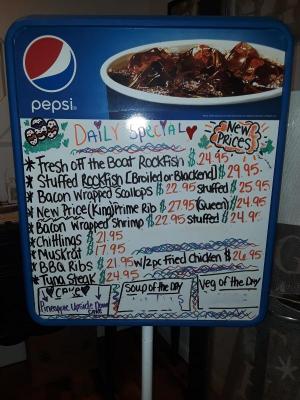 pepsi
DAiLy SpeciAL
NEW PRICES
* Fresh off the Boat Rockfish $24.95
* Stuffed Rockfish [Broiled or Blackend] $29.95
* Bacon Wrapped Scallops $22.95 Stuffed $25.95
* New Price (King) Prime Rib $27.95 (Queen) $24.95
* Bacon Wrapped Shrimp $22.95 Stuffed $24.95
* Chitlings $21.95
* Muskrat $17.95
* BBQ Ribs $21.95 w/2pc fried Chicken $26.95
* Tuna Steak $24.95
CAKE
Soup of the DAY
Veg of the Day
Pineapple Upside Down Cake